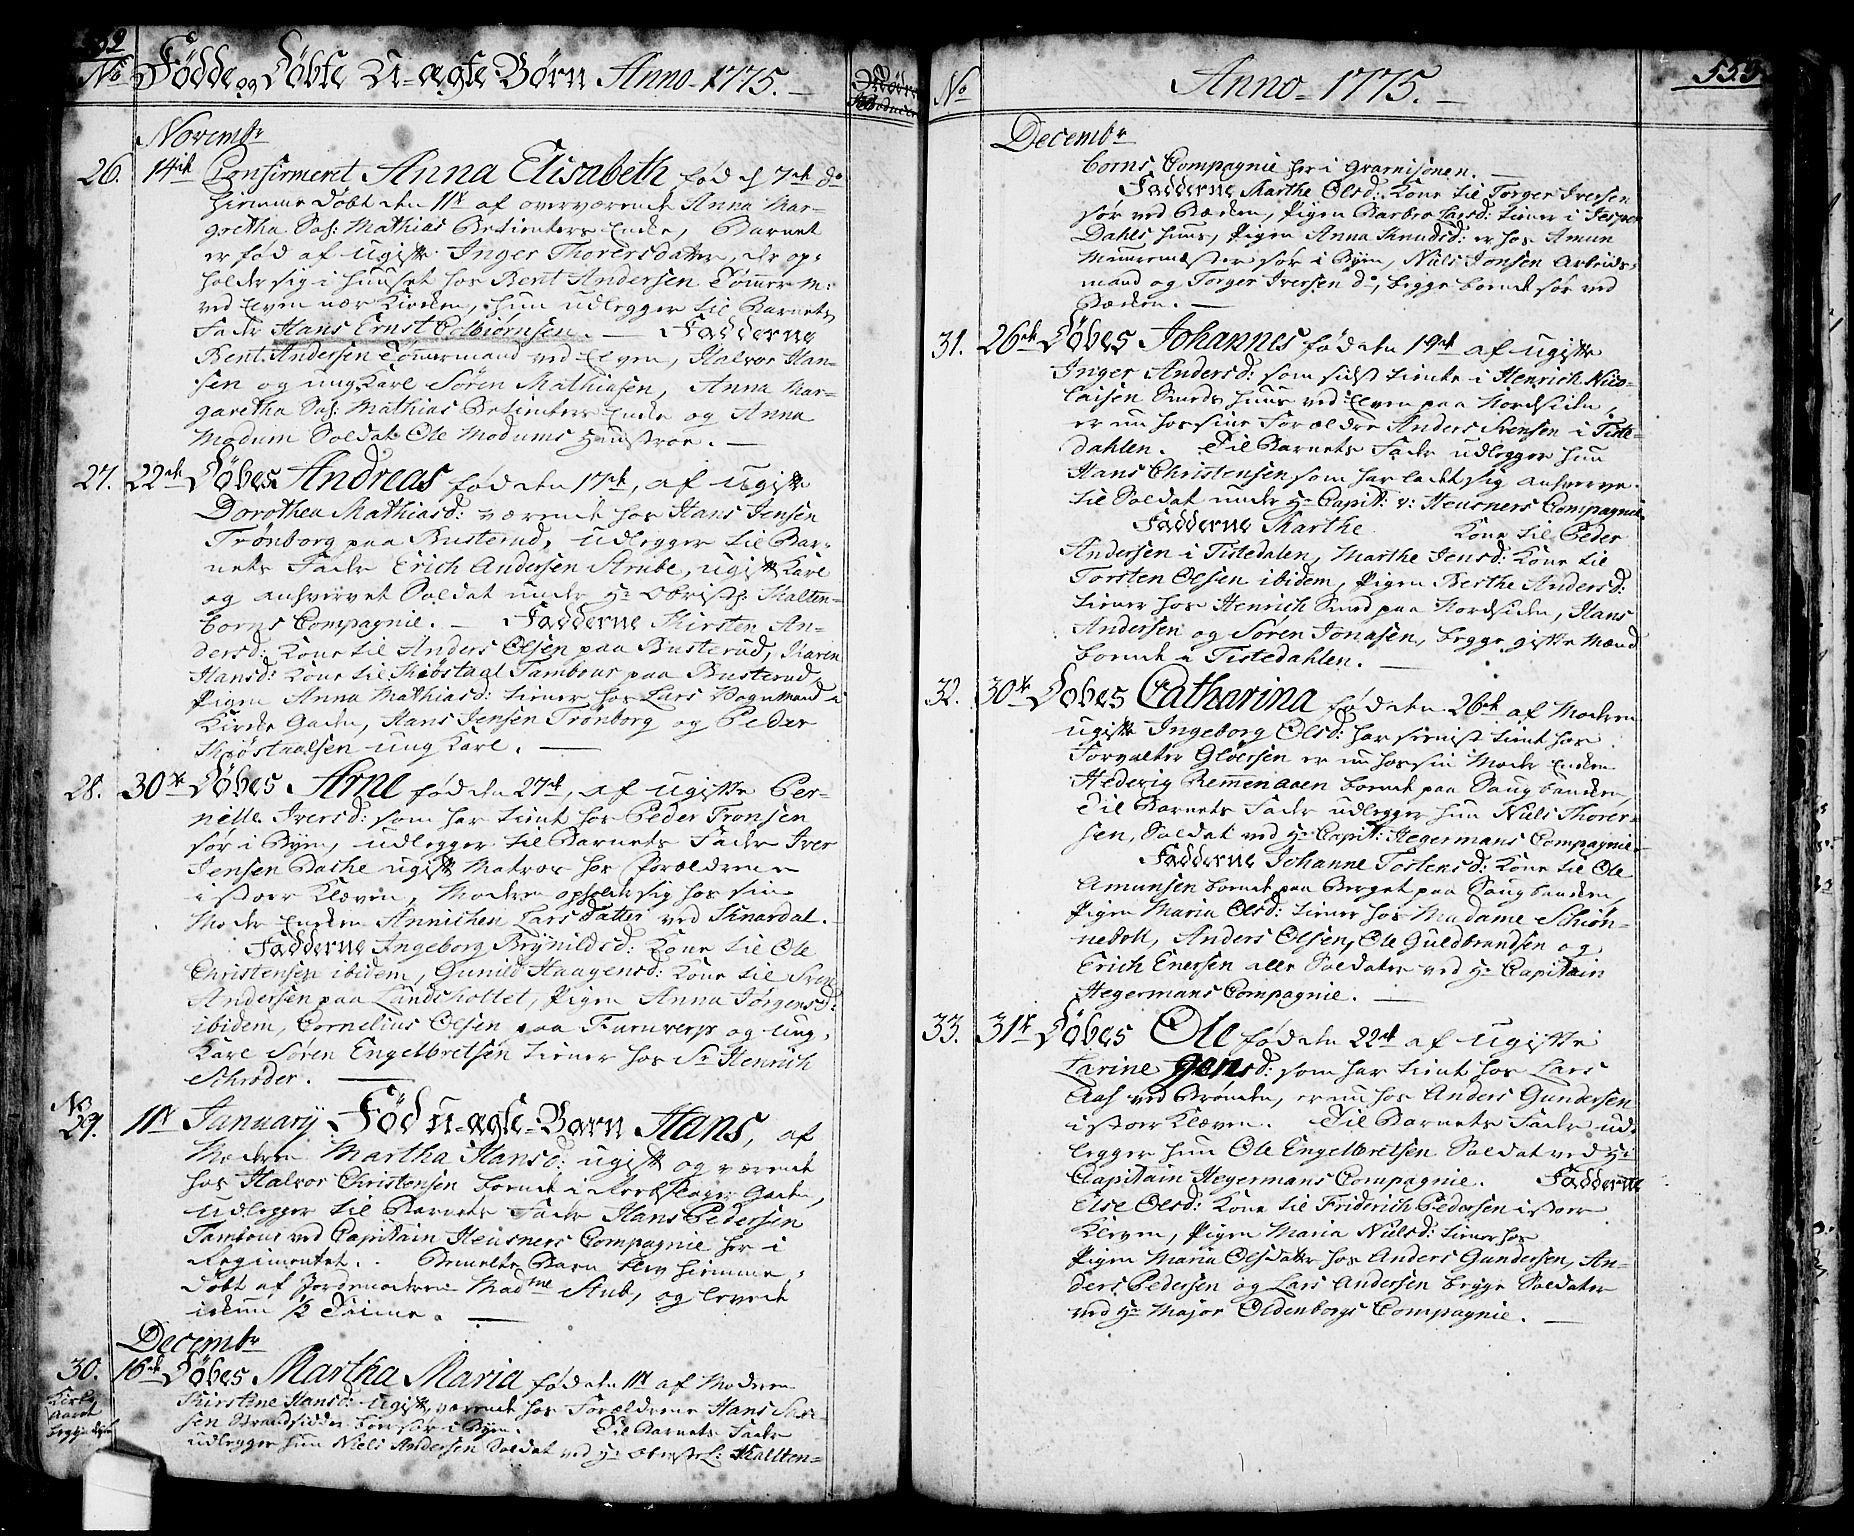 No Fødde og Døbte U-ægte Børn Anno 1775.
Novembr
26. 14de Confirmeret Anna Elisabeth fød d 7de do
hiemme døbt den 11te af overværende Anna Mar-
gretha Sal: Mathias Betienters Enke, Barnet
er fød af ugifte Inger Thoresdatter, der op-
holder sig i huuset hos Bent Andersen Tømmerm:
ved Elven nær Kirken, hun udlegger til Barnets
Fader Hans Ernst Eelbiørnsen. — Fadderne
Bent Andersen Tømmermand ved Elven, Halvor Han-
sen og ung Karl Søren Mathiasen, Anna Mar-
garetha Sal: Mathias Betienters Enke og Anna
Modum Soldat Ole Modums Hustroe. —
27. 22de Døbes Andreas fød den 17de, af ugifte
Dorothea Mathiasd: værende hos Hans Jensen
Trønborg paa Busterud, udlegger til Bar-
nets Fader Erich Andersen Strube, ugift Karl
og anhvervet Soldat under Hr Obristl: Kalten-
borns Compagnie. — Fadderne Kirsten An-
dersd: Kone til Anders Olsen paa Busterud, Karen
Hansd: Kone til Kiøstaal Tambour paa Busterud,
Pigen Anna Mathiasd: tiener hos Lars Vognmand i
Kirke Gaden, Hans Jensen Trønborg og Peder
Kiøstaalsen ung Karl. —
28. 30te Døbes Arne fød den 27de, af ugifte Per-
nille Iversd: som har tient hos Peder Tronsen
sør i Byen, udlegger til Barnets Fader Iver
Jensen Bache ugift Matros hos Forældrene
i stoer Kleven, Moderen opholder sig hos sin
Moder Enken Annichen Lars Datter ved Skaardal.
Fadderne Ingeborg Brynildsd: Kone til Ole
Christensen ibidem, Gunild Haagensd: Kone til Svend
Andersen paa Landskottet, Pigen Anna Jørgensd:
ibidem, Cornelius Olsen paa og ung
Karl Søren Engelbretsen tiener hos Sr Henrich
Schrøder. —
No
29. 11te January Fød U-ægte-Barn Hans, af
Moderen Martha Hansd: ugift og værende
hos Halvor Christensen boende i Gaden,
udlegger til Barnets Fader Hans Pedersen
Tambour ved Capitain Heusners Compagnie her i
Regimentet. Bemelte Barn blev hiemme
døbt af Jordemoderen Madme Stub, og levede
ikkun ½ Time. —
Decembr
30. 16de Døbes Martha Maria fød den 11te af Moderen
Kirstine Hansd: ugift, værende hos Forældrene Hans
sen Strandsidder boer sør i Byen. Til Barnets Fader
udlegger hun Niels Andersen Soldat ved Hr Obristl: Kallten-
No Anno 1775. 553
Decembr
borns Compagnie her i Gvarnisonen. —
Fadderne Marthe Olsd: Kone til Torger Iversen
sør ved Bækken, Pigen Barbro Larsd: tiener i Jesper
Dahls huus, Pigen Anna Knudsd: er hos Amun
Muurmester sør i Byen, Niels Jonsen Arbeids-
mand og Torger Iversen do, begge boende sør ved
Bækken. —
31. 26de Døbes Johannes fød den 19de af ugifte
Inger Andersd: som sidst tiente i Henrich Nico-
laisen Smeds huus ved Elven paa Nordsiden,
er nu hos sine Forældre Anders Svensen i Tiste-
dahlen. Til Barnets Fader udlegger hun
Hans Christensen som har ladet sig anhverve
til Soldat under Hr Capit: v: Heusners Compagnie.
Fadderne Marthe Kone til Peder
Andersen i Tistedalen, Marthe Jensd: Kone til
Torsten Olsen ibidem, Pigen Berthe Andersd:
tiener hos Henrich Smed paa Nordsiden, Hans
Andersen og Søren Jonasen, begge gifte Mænd
boende i Tistedahlen. —
32. 30te Døbes Catharina fød den 26de af Moderen
ugifte Ingeborg Olsd: har sienist tient hos
Forvalter Gløersen er nu hos sin Moder Enken
Hedevig Remmenaaen boende paa Saugbanken,
Til Barnets Fader udlegger hun Niels Thorer-
sen, Soldat ved Hr Capit: Hegermans Compagnie.
Fadderne Johanne Tostensd: Kone til Ole
Amunsen boende paa Berget paa Saugbanken,
Pigen Maria Olsd: tiener hos Madame Schiøn-
neboll, Anders Olsen, Ole Guldbrandsen og
Erich Enersen alle Soldater ved Hr Capitain
Hegermans Compagnie. —
33. 31te Døbes Ole fød den 22de af ugifte
Larine Jensd: som har tient hos Lars
Aas ved Brønden, er nu hos Anders Gundersen
i stoer Kleven. Til Barnets Fader ud-
legger hun Ole Engelbretsen Soldat ved Hr
Capitain Hegermans Compagnie. Fadderne
Else Olsd: Kone til Friderich Pedersen i stoer
Kleven, Pigen Maria Nielsd: tiener hos
Pigen Maria Olsdatter hos Anders Gundersen, An-
ders Pedersen og Lars Andersen begge Soldater
ved Hr Major Oldenborgs Compagnie. —